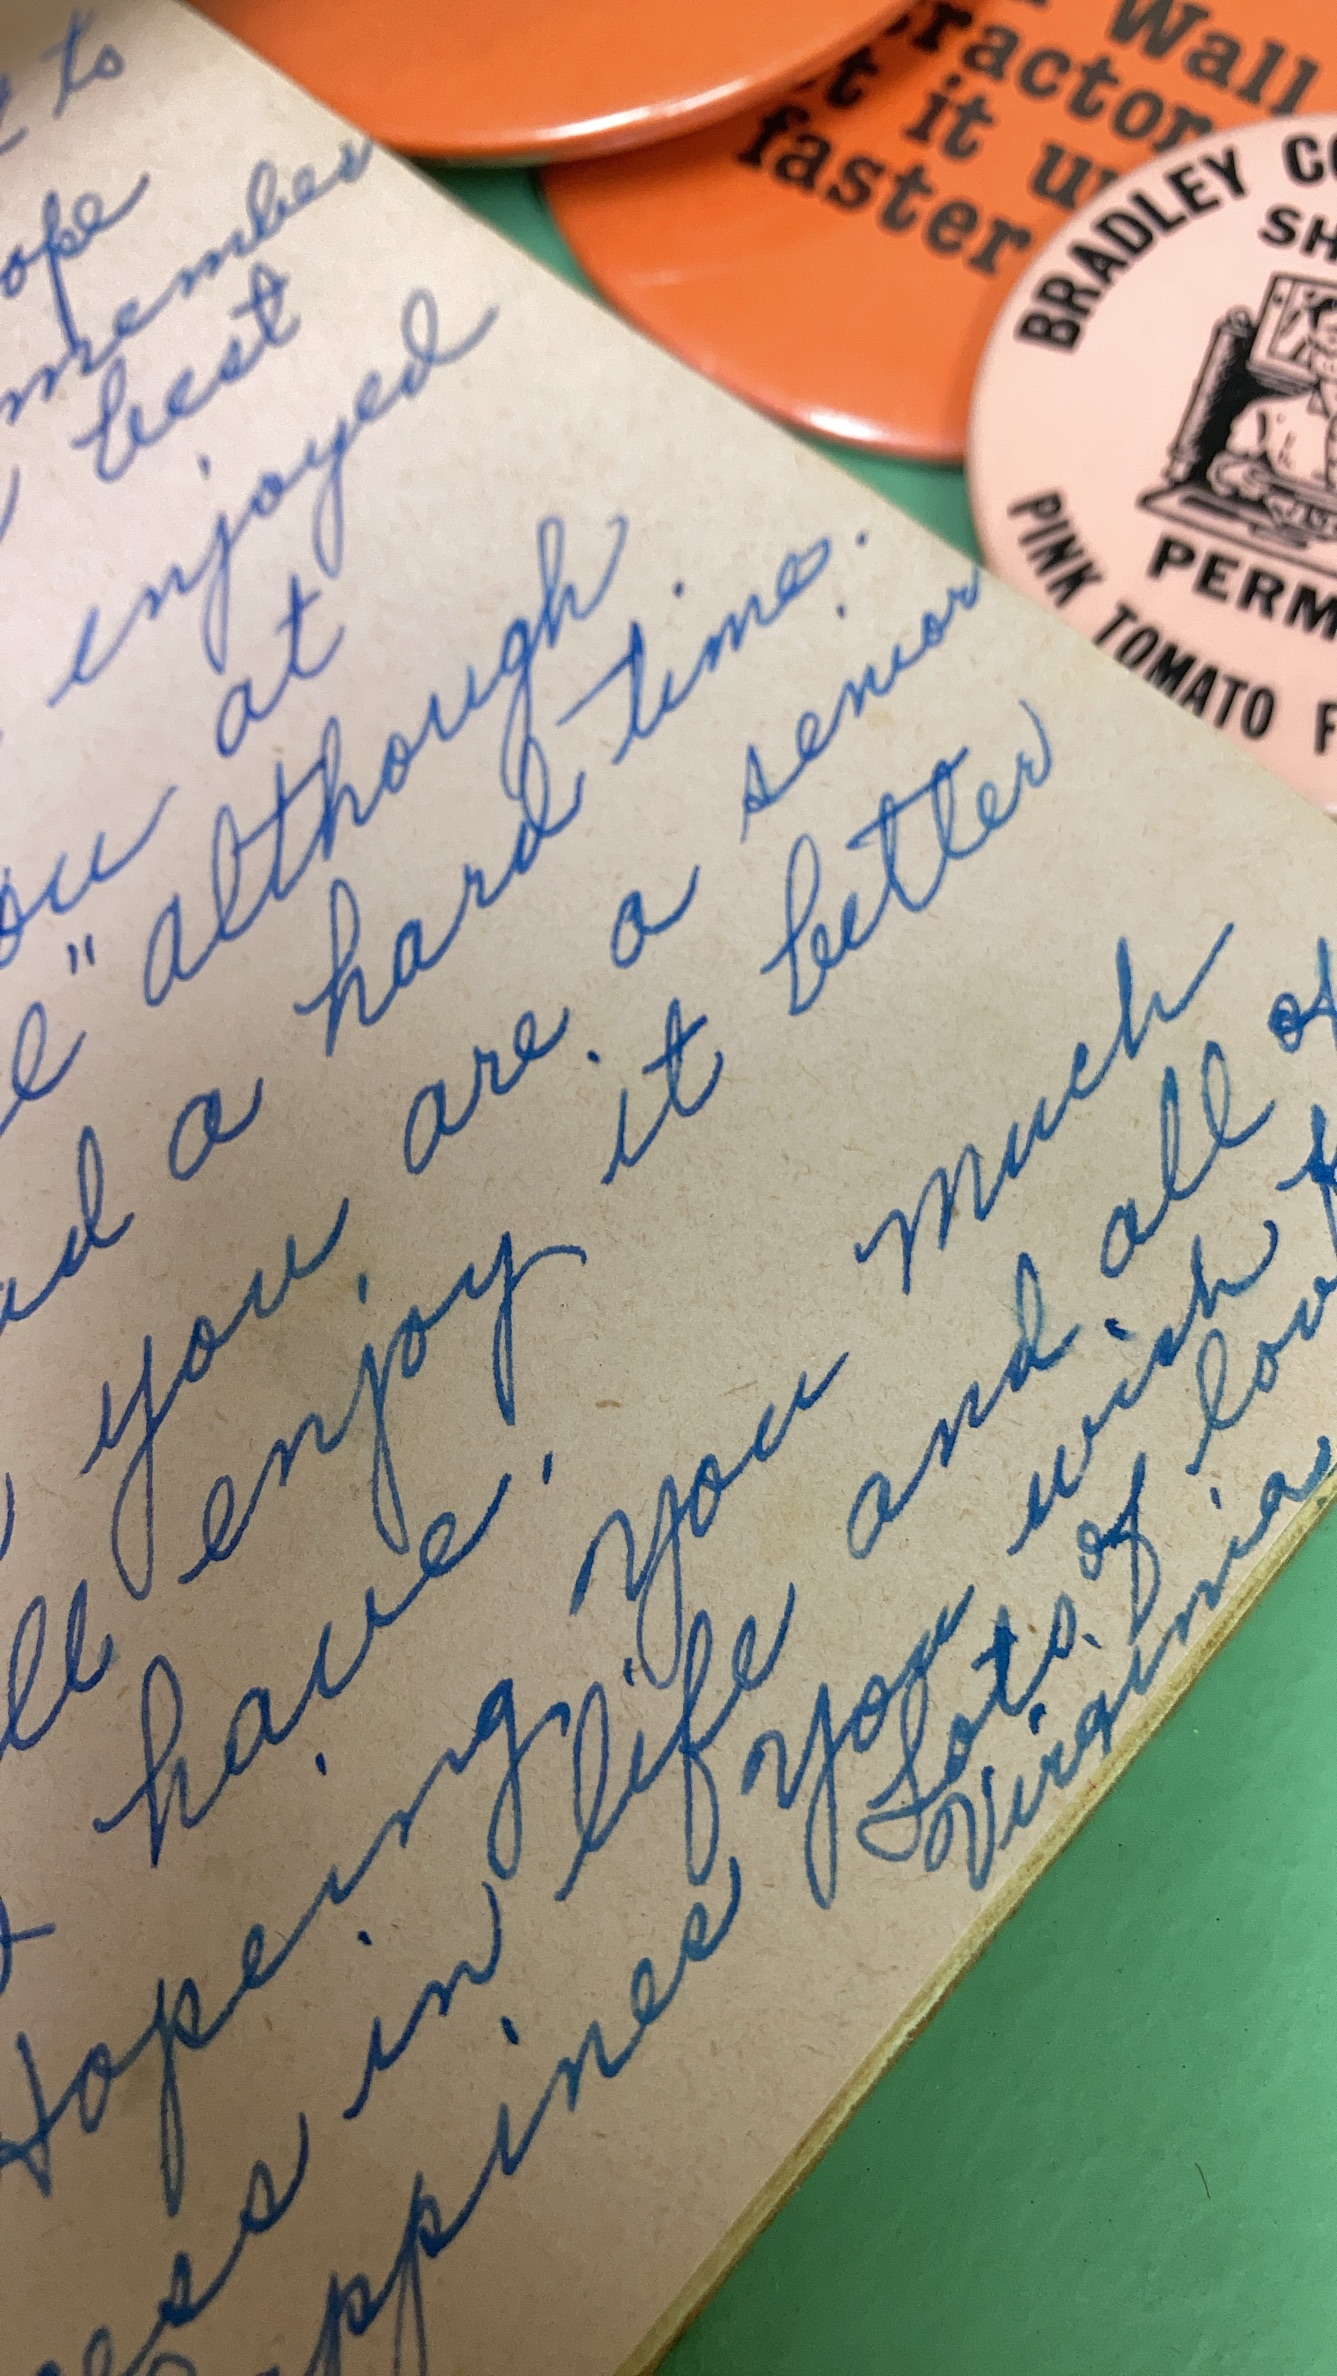 to
ope
member
best
enjoyed
ou at
" although
ad a hard time.
you are a senior
ll enjoy it better
have.
Hopeing you much
ess in life and all of
appines you wish f
Lots of lov
Virginia
Wall
ractor
t it u
faster
BRADLEY CO
SH
PERM
PINK TOMATO F